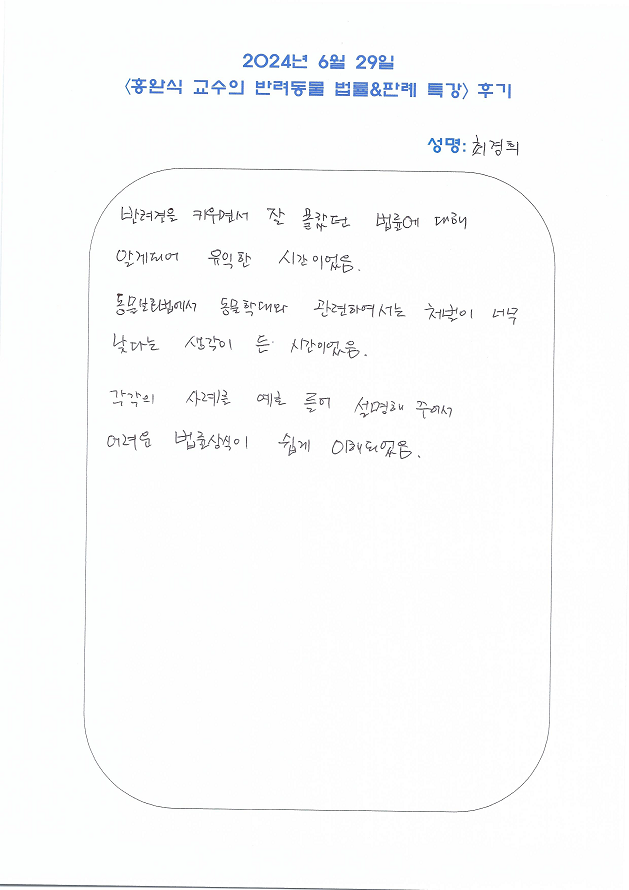 2024년 6월 29일
<홍완식 교수의 반려동물 법률&판례 특강> 후기
성명: 최경희
반려견을 키우면서 잘 몰랐던 법률에 대해
알게되어 유익한 시간이었음.
동물보호법에서 동물학대와 관련하여서는 처벌이 너무
낮다는 생각이 든 시간이었음.
각각의 사례를 예로 들어 설명해 주어서
어려운 법률상식이 쉽게 이해되었음.